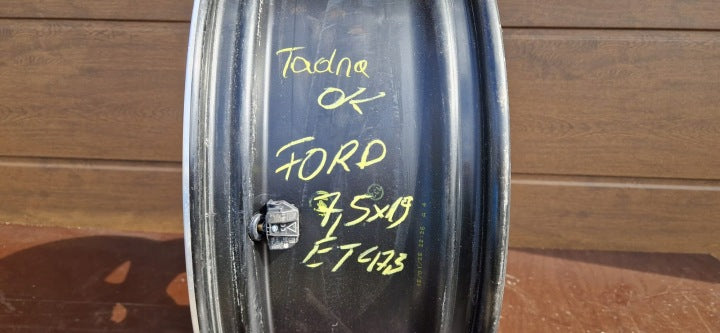 Tadna
OK
FORD
7,5x19
ET 47,3